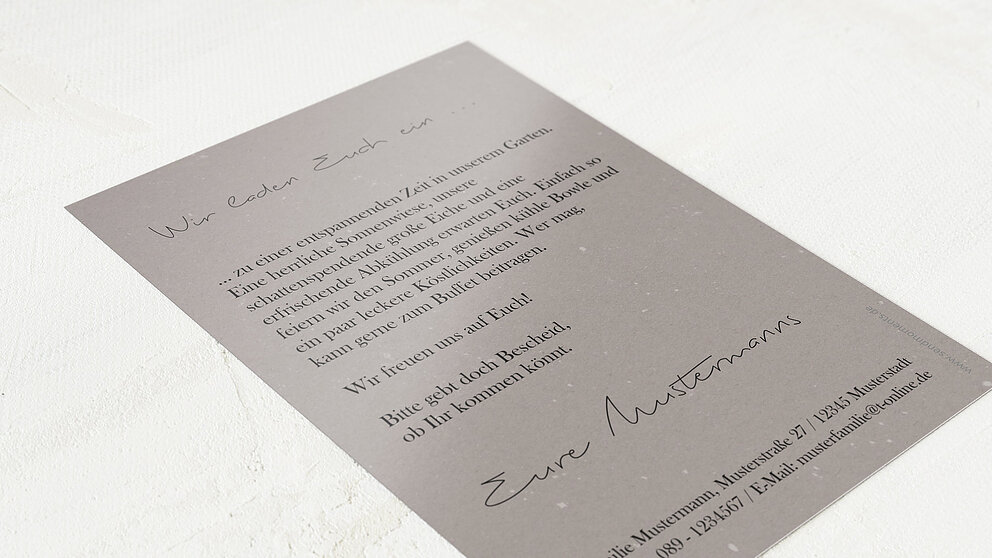 Wir laden Euch ein ...
... zu einer entspannenden Zeit in unserem Garten.
Eine herrliche Sonnenwiese, unsere
schattenspendende große Eiche und eine
erfrischende Abkühlung erwarten Euch. Einfach so
feiern wir den Sommer, genießen kühle Bowle und
ein paar leckere Köstlichkeiten. Wer mag,
kann gerne zum Buffet beitragen.
Wir freuen uns auf Euch!
Bitte gebt doch Bescheid,
ob Ihr kommen könnt.
Eure Mustermanns
ilie Mustermann, Musterstraße 27 / 12345 Musterstadt
089 - 1234567 / E-Mail: musterfamilie@t-online.de
www.sendmoments.de